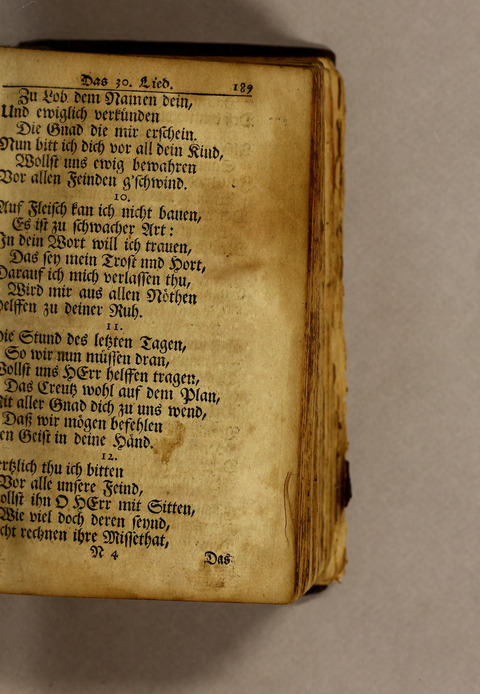 Das 30. Lied. 189
Zu Lob dem Namen dein,
Und ewiglich verkünden
Die Gnad die mir erschein.
Nun bitt ich dich vor all dein Kind,
Wollst uns ewig bewahren
Vor allen Feinden g'schwind.
10.
Auf Fleisch kan ich nicht bauen,
Es ist zu schwacher Art:
In dein Wort will ich trauen,
Das sey mein Trost und Hort,
Darauf ich mich verlassen thu,
Wird mir aus allen Nöthen
helffen zu deiner Ruh.
11.
Die Stund des letzten Tagen,
So wir nun müssen dran,
Wollst uns HErr helffen tragen,
Das Creutz wohl auf dem Plan,
Mit aller Gnad dich zu uns wend,
Daß wir mögen befehlen
en Geist in deine Händ.
12.
ertzlich thu ich bitten
Vor alle unsere Feind,
ollst ihn O HErr mit Sitten,
Wie viel doch deren seynd,
cht rechnen ihre Missethat,
N 4 Das